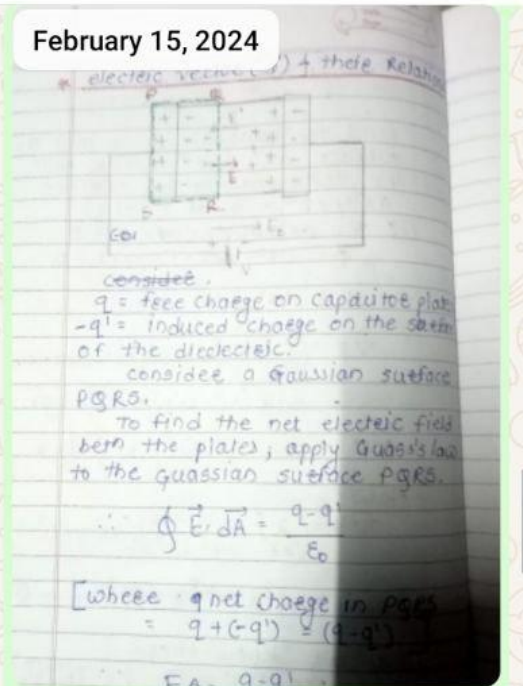 February 15, 2024
* electric vector ( ') & there Relation
P Q
+ - + -
E'
E
S R
E₀
+ -
V
considee.
q = feee chaege on capacitoe plate
-q' = induced chaege on the surface
of the dieclecteic.
considee a Gaussian sueface
PQRS.
To find the net electeic field
betn the plates, apply Guass's law
to the Guassian sueface PQRS.
∴ ∮ E⃗. dA⃗ = q-q' / ε₀
[wheee q net chaege in PQRS
= q+(-q') = (q-q')
EA = q-q'